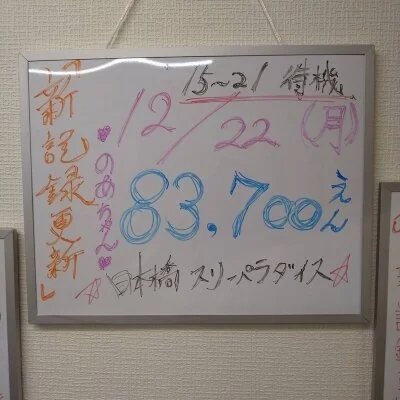 「新記録更新」
15~21 待機
12/22(月)
♥のあちゃん♥
83,700えん
☆日本橋 スリーパラダイス☆